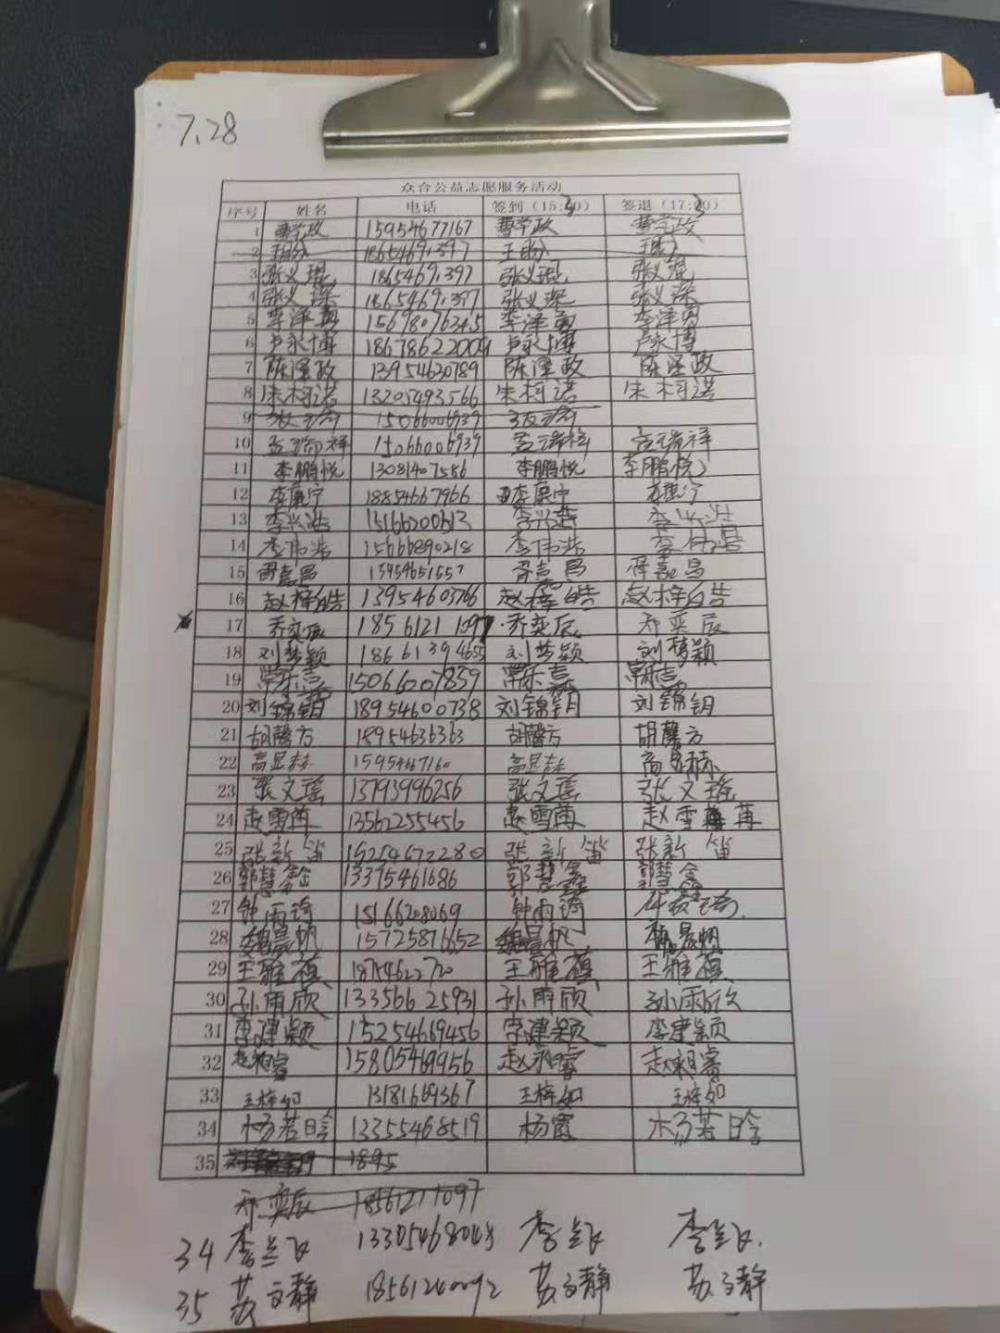 7.28
众合公益志愿服务活动
序号 姓名 电话 签到（15:30） 签退（17:30）
1 曹学政 15954677167 曹学政 曹学政
2 18654691397 王盼
3 张义琨 18654691397 张义琨 张义琨
4 张义深 18654691397 张义深 张义深
5 李泽勇 15698076345 李泽勇 李泽勇
6 卢永博 18678622004 卢永博 卢永博
7 陈泽政 13954620789 陈泽政 陈泽政
8 朱柯诺 13205493566 朱柯诺 朱柯诺
9 15066006939
10 孟瑞祥 15066006939 孟瑞祥 孟瑞祥
11 李鹏悦 13081407586 李鹏悦 李鹏悦
12 李康宁 18854667966 李康宁
13 李兴浩 15166200613 李兴浩 李兴浩
14 李伟浩 15666890218 李伟浩 李伟浩
15 胥嘉昌 胥嘉昌 胥嘉昌
16 赵梓皓 13954603766 赵梓皓 赵梓皓
17 乔奕辰 18561211097 乔奕辰 乔奕辰
18 刘梦颖 18661394655 刘梦颖 刘梦颖
19 常乐言 15066207839 常乐言 常乐言
20 刘锦钥 18954600738 刘锦钥 刘锦钥
21 胡馨方 18954636363 胡馨方 胡馨方
22 高昱赫 15954667160 高昱赫 高昱赫
23 张文瑶 13793996256 张文瑶 张文瑶
24 赵雪苒 13562255456 赵雪苒 赵雪苒
25 张新笛 15254672280 张新笛 张新笛
26 郭慧鑫 13375461686 郭慧鑫 郭慧鑫
27 钟雨琦 15166208069 钟雨琦
28 魏晨帆 15725871652 魏晨帆 魏晨帆
29 王雅蕴 18754622720 王雅蕴 王雅蕴
30 孙雨欣 13356625931 孙雨欣 孙雨欣
31 李建颖 15254669456 李建颖 李建颖
32 赵相睿 15805469956 赵相睿 赵相睿
33 王梓如 13181669367 王梓如 王梓如
34 杨若晗 13355468519 杨霞 杨若晗
35 1895
乔奕辰 18561211097
34 李兰飞 李兰飞 李兰飞
35 苏文静 18561240092 苏文静 苏文静